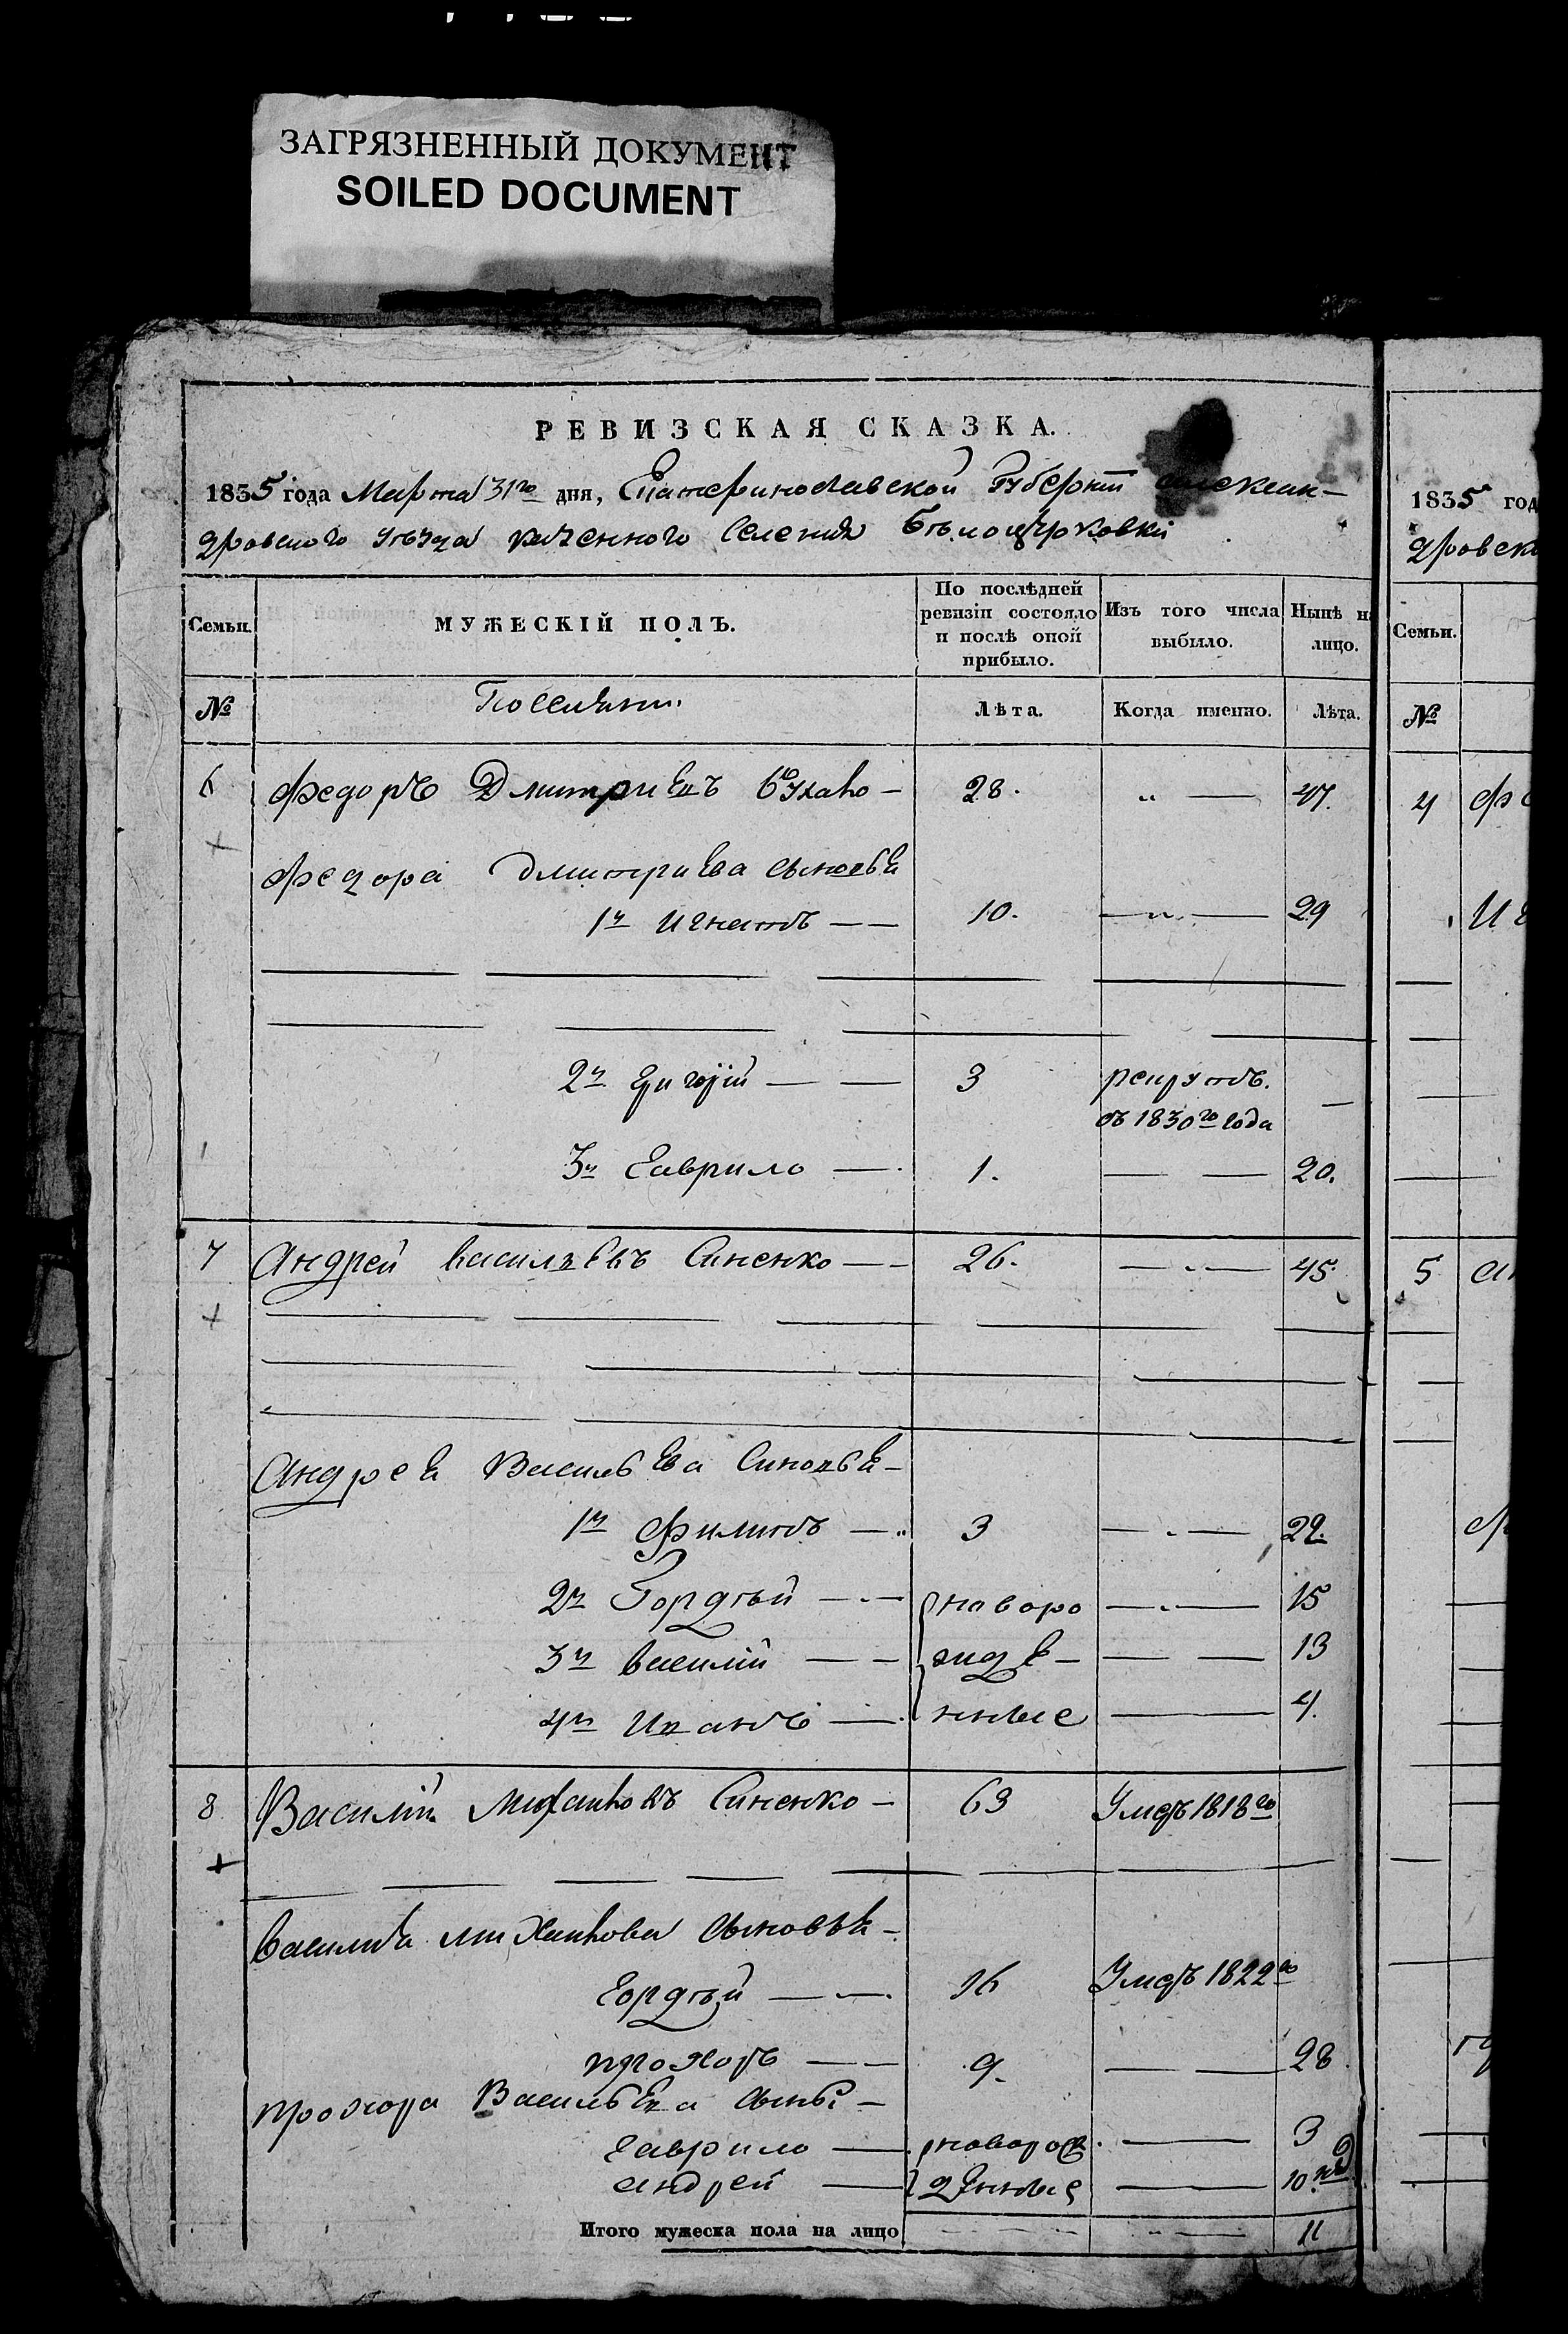 ЗАГРЯЗНЕННЫЙ ДОКУМЕНТ
SOILED DOCUMENT
РЕВИЗСКАЯ СКАЗКА.
1835 года Марта 31го дня, Екатеринославской Губернии Алексан-
дровского уѣзда казенного селения Бѣлоцерковки
Семьи.
МУЖЕСКІЙ ПОЛЪ.
По послѣдней ревизіи состояло и послѣ оной прибыло.
Изъ того числа выбыло.
Нынѣ на лицо.
№
Лѣта.
Когда именно.
Лѣта.
6 Федоръ Дмитриевъ 28. 47.
Федора Дмитриева сыновья
1й Игнатъ 10. 29
2й Григорій 3 рекрутъ.
въ 1830го года
3й Гаврило 1. 20.
7 Андрей васильевъ Синенко 26. 45.
Андрея Васильева Сыновья
1й Филипъ 3 22.
2й Гордѣй новоро 15
3й василій жде 13
4й Иванъ нные 4.
8 Василий Михайловъ Синенко 63 Умеръ 1818го
Василия михайлова сыновья
Гордѣй 16 Умеръ 1822го
прохоръ 9. 28
прохора Васильева сыны
Гаврило новорож 3
андрей денные 10 нед
Итого мужеска пола на лицо 11
1835 год
дровск
Семьи.
№
4 Фе
5 Ан